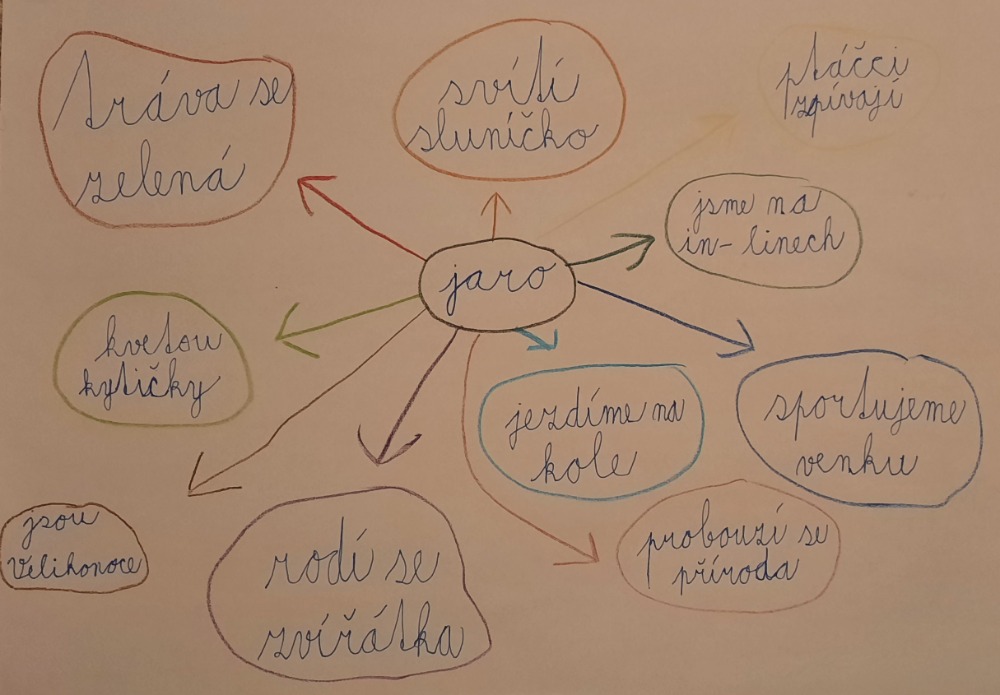 tráva se
zelená
svítí
sluníčko
ptáčci
zpívají
jsme na
in-linech
jaro
kvetou
kytičky
jezdíme na
kole
sportujeme
venku
jsou
Velikonoce
rodí se
zvířátka
probouzí se
příroda